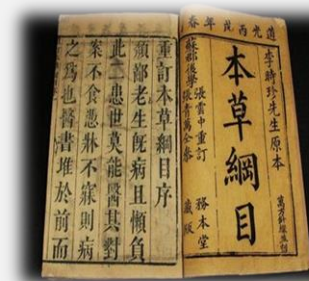 道光丙戌年春
李時珍先生原本
本草綱目
張雲中重訂
張青萬仝參
務本堂
藏版
重訂本草綱目序
瀕鄙老生既病且懶負
此二患世莫能醫其對
案不食憑牀不寐則病
之爲也醫書堆於前而